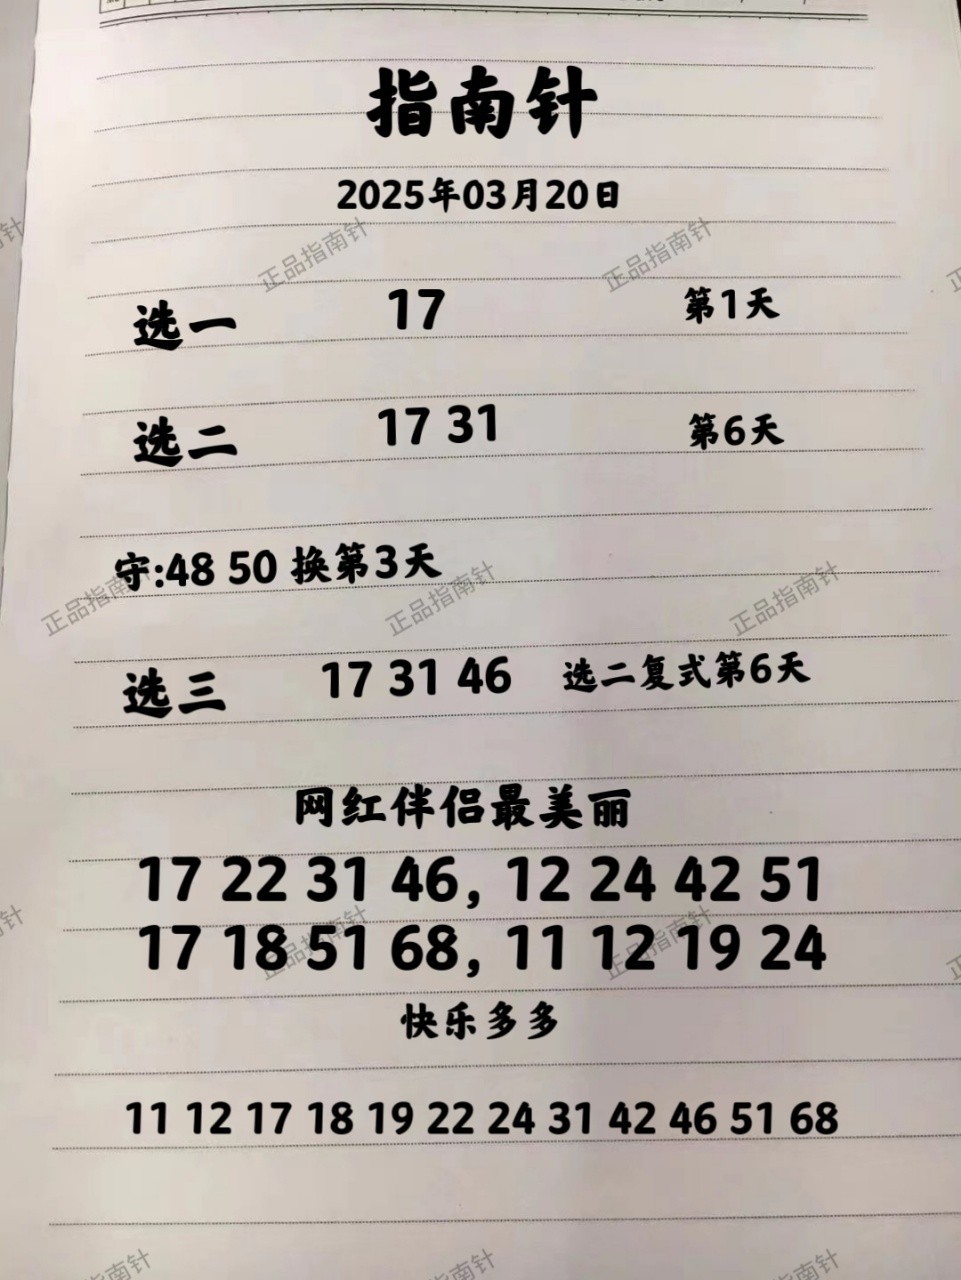 指南针
2025年03月20日
选一 17 第1天
选二 17 31 第6天
守:48 50 换第3天
选三 17 31 46 选二复式第6天
网红伴侣最美丽
17 22 31 46, 12 24 42 51
17 18 51 68, 11 12 19 24
快乐多多
11 12 17 18 19 22 24 31 42 46 51 68
正品指南针
正品指南针
正品指南针
正品指南针
正品指南针
正品指南针
正品指南针